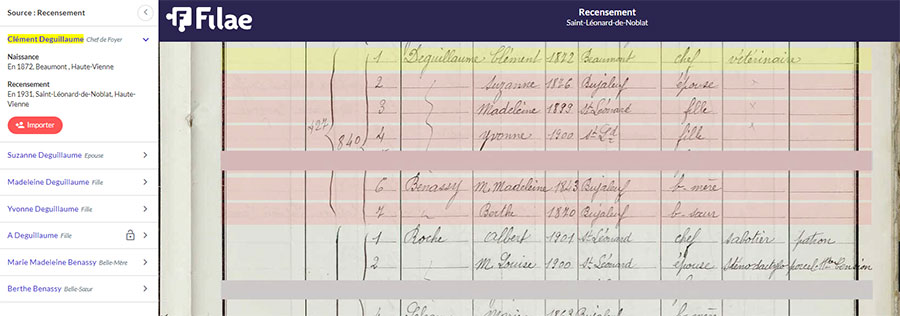 Source : Recensement
Clément Deguillaume Chef de Foyer
Naissance
En 1872, Beaumont , Haute-Vienne
Recensement
En 1931, Saint-Léonard-de-Noblat, Haute-
Vienne
Importer
Suzanne Deguillaume Epouse
Madeleine Deguillaume Fille
Yvonne Deguillaume Fille
A Deguillaume Fille
Marie Madeleine Benassy Belle-Mère
Berthe Benassy Belle-Sœur
Filae
Recensement
Saint-Léonard-de-Noblat
1 Deguillaume Clément 1872 Beaumont chef vétérinaire
2 " Suzanne 1876 Bujaleuf épouse x
3 Madeleine 1899 St Léonard fille x
427 840 4 Yvonne 1900 St Ld fille x
6 Benassy M. Madeleine 1843 Bujaleuf b. mère
7 " Berthe 1870 Bujaleuf b. sœur
1 Roche Albert 1901 St Léonard chef sabotier patron
2 " M. Louise 1900 St Léonard épouse sténo dactylo